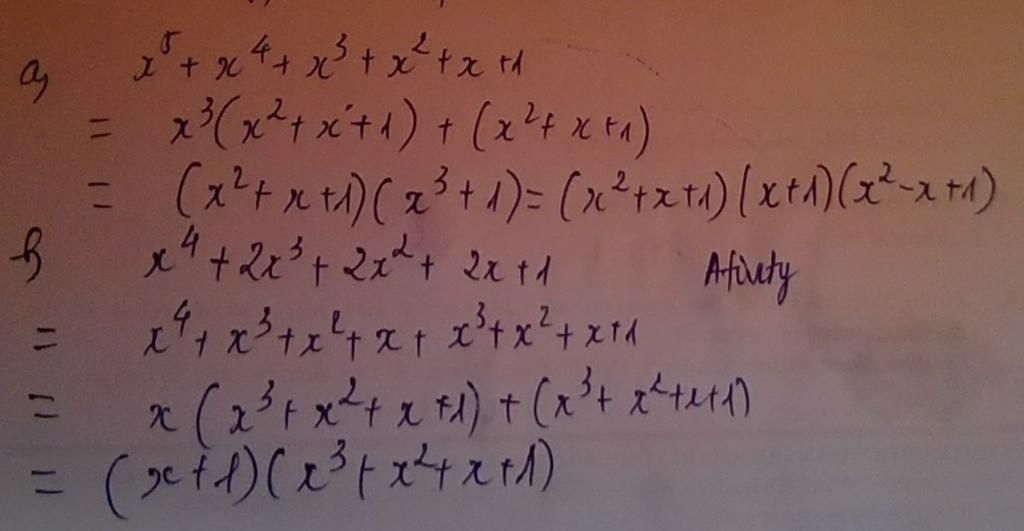 a) x⁵ + x⁴ + x³ + x² + x + 1
= x³(x² + x + 1) + (x² + x + 1)
= (x² + x + 1)(x³ + 1) = (x² + x + 1)(x + 1)(x² - x + 1)
b) x⁴ + 2x³ + 2x² + 2x + 1
= x⁴ + x³ + x² + x + x³ + x² + x + 1
= x(x³ + x² + x + 1) + (x³ + x² + x + 1)
= (x + 1)(x³ + x² + x + 1)